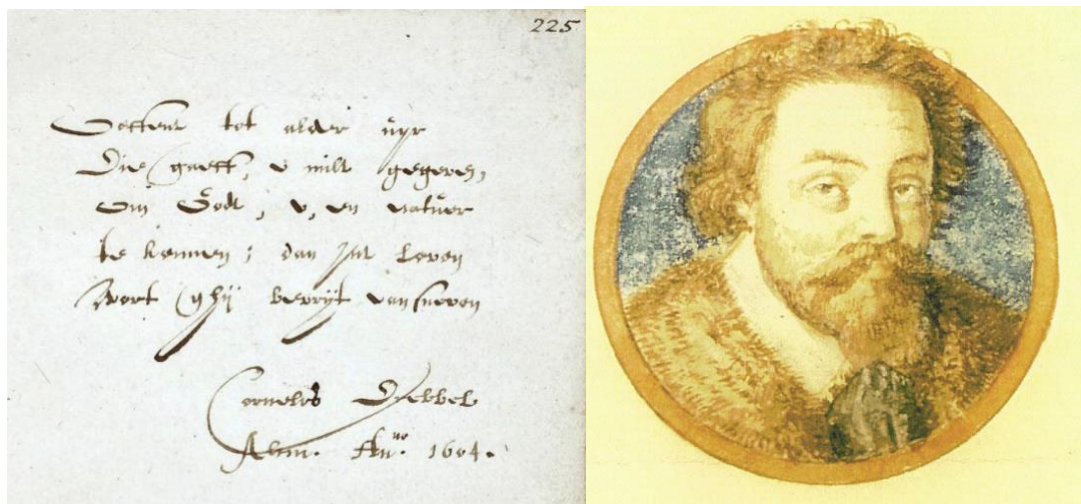 225
Oeffent tot alder uÿr
Die gaeff, u milt gegeven,
Om Godt, u, en natuer
te kennen; dan Int Leven
Wort ghÿ bevrÿt van sneven
Cornelis Drebbel
Alcm. Anno. 1604.